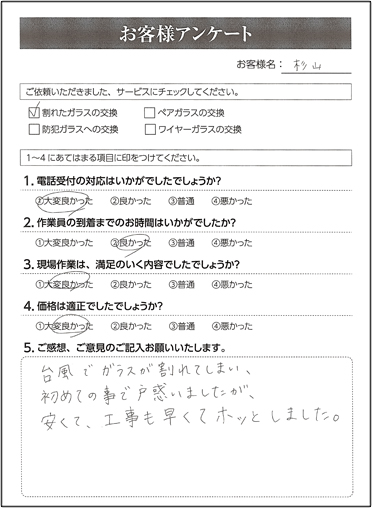 お客様アンケート
お客様名： 杉山
ご依頼いただきました、サービスにチェックしてください。
☑割れたガラスの交換 □ペアガラスの交換
□防犯ガラスへの交換 □ワイヤーガラスの交換
1〜4にあてはまる項目に印をつけてください。
1. 電話受付の対応はいかがでしたでしょうか?
①大変良かった ②良かった ③普通 ④悪かった
2. 作業員の到着までのお時間はいかがでしたか?
①大変良かった ②良かった ③普通 ④悪かった
3. 現場作業は、満足のいく内容でしたでしょうか?
①大変良かった ②良かった ③普通 ④悪かった
4. 価格は適正でしたでしょうか?
①大変良かった ②良かった ③普通 ④悪かった
5. ご感想、ご意見のご記入お願いいたします。
台風でガラスが割れてしまい、
初めての事で戸惑いましたが、
安くて、工事も早くてホッとしました。